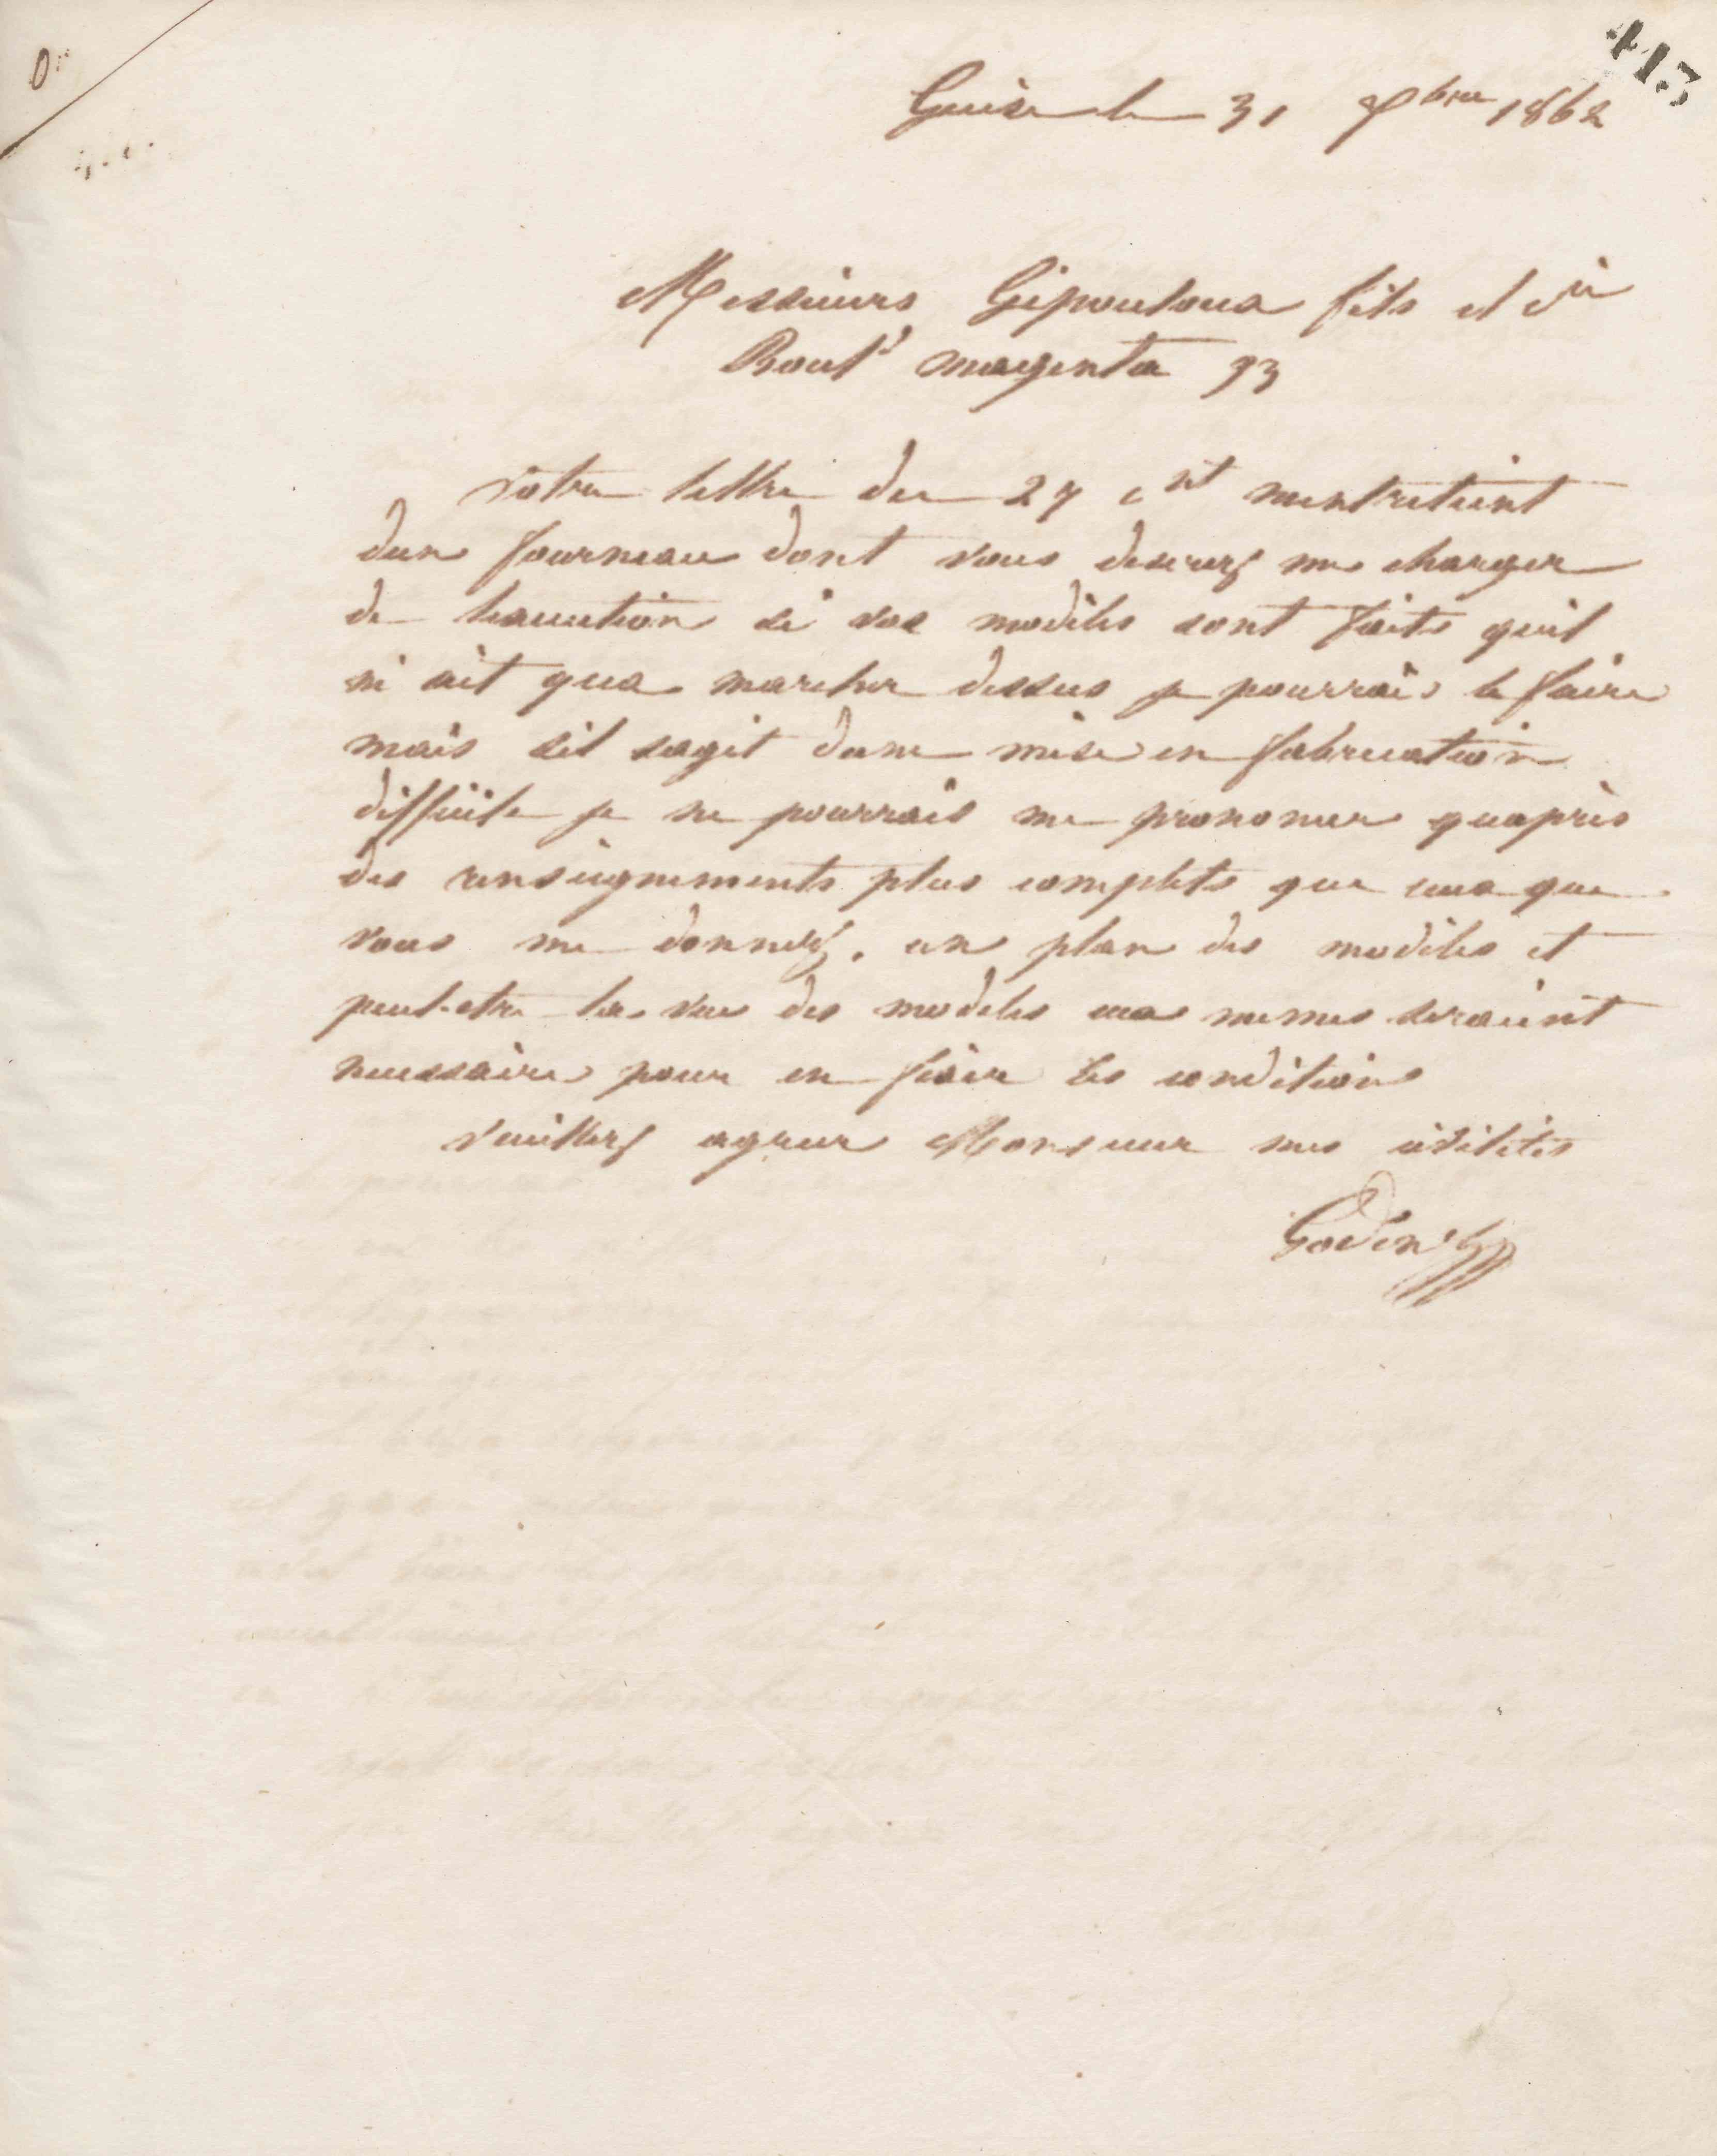 413
Guise le 31 9bre 1862
Messieurs Gipouloux fils et Cie
Bould magenta 33
votre lettre du 27 ct mentretient
dun fourneau dont vous desirez me charger
de lexecution si vos modèles sont faits quil
ni ait qua marcher dessus je pourrais le faire
mais sil sagit dune mise en fabrication
difficile je ne pourrais me prononcer quaprès
des renseignements plus complets que ceux que
vous me donnez. un plan des modèles et
peut-etre la vue des modeles eux memes seraient
necessaires pour en fixer les conditions
veuillez agreer Monsieur mes civilités
Godin